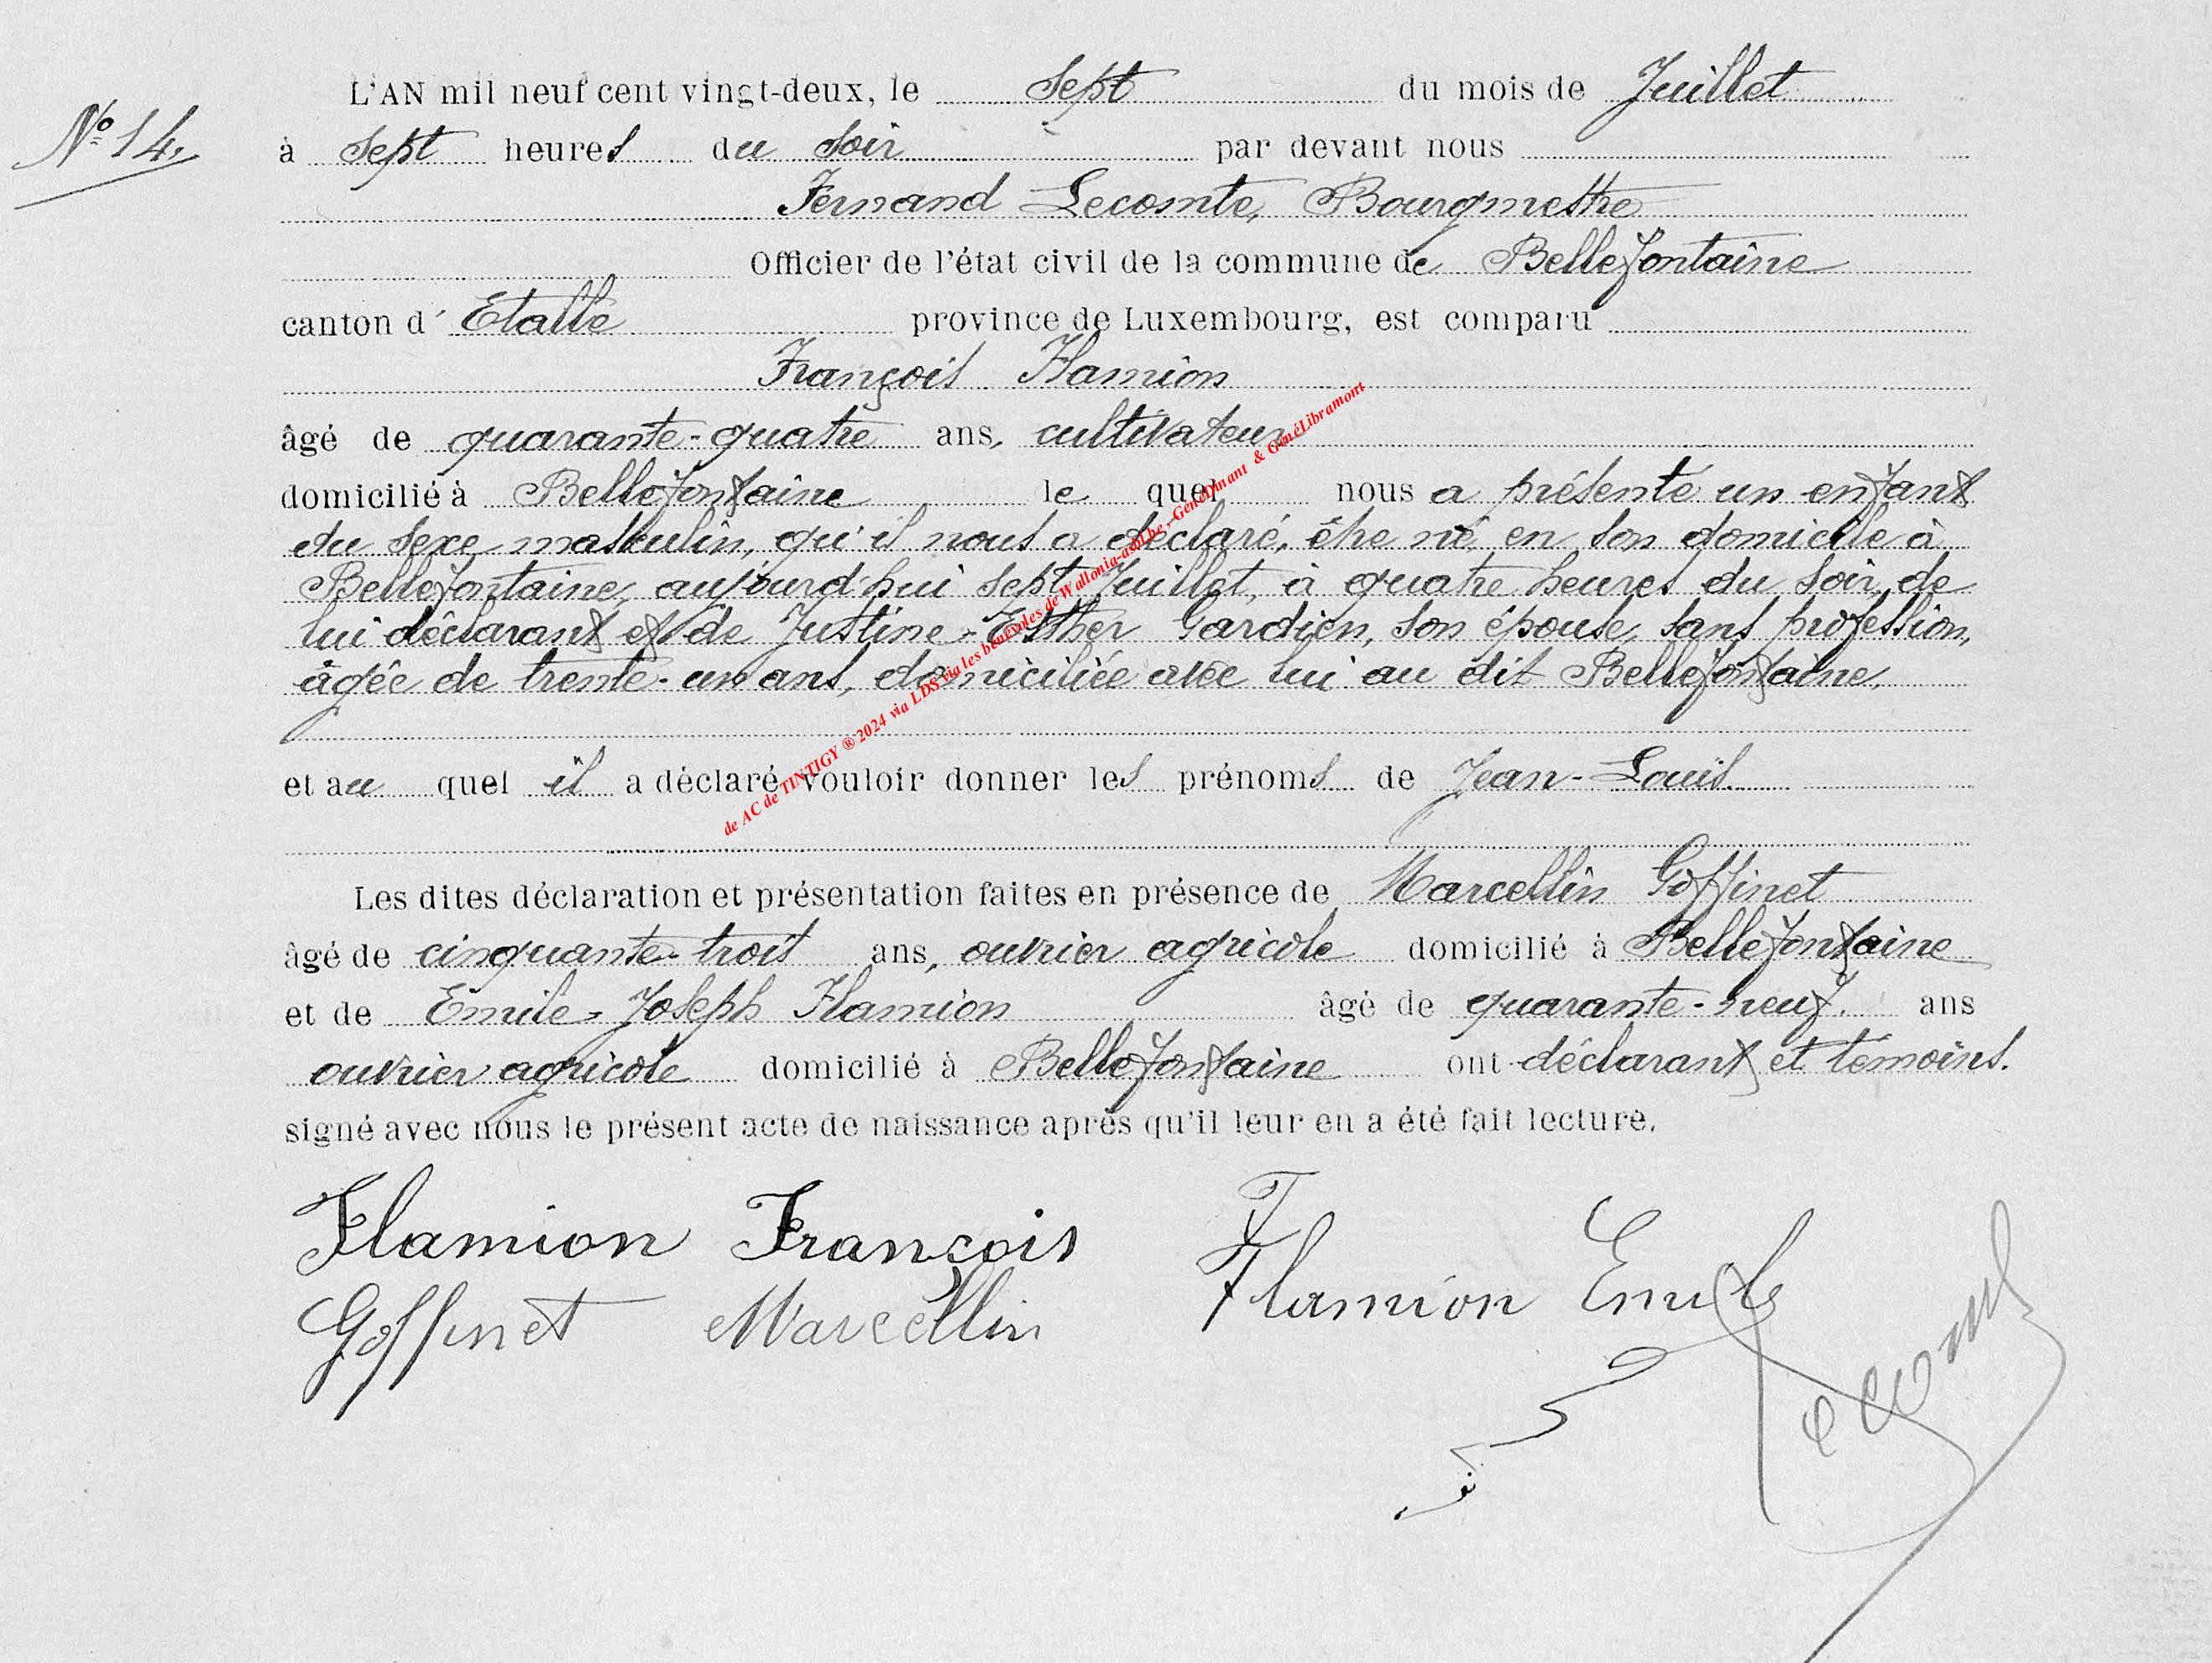 L'AN mil neuf cent vingt-deux, le Sept du mois de Juillet
N° 14.
à Sept heures du Soir par devant nous
Fernand Lecomte, Bourgmestre
Officier de l'état civil de la commune de Bellefontaine
canton d' Etalle province de Luxembourg, est comparu
François Flamion
âgé de quarante-quatre ans, cultivateur
domicilié à Bellefontaine le quel nous a présenté un enfant
du sexe maskulin, qu'il nous a déclaré, être né, en son domicile à
Bellefontaine, aujourd'hui sept Juillet, à quatre heures du Soir, de
lui déclarant et de Justine-Esther Gardien, son épouse, sans profession,
âgée de trente-un ans, domiciliée avec lui au dit Bellefontaine.
et au quel il a déclaré vouloir donner les prénoms de Jean-Louis.
Les dites déclaration et présentation faites en présence de Marcellin Goffinet
âgé de cinquante-trois ans, ouvrier agricole domicilié à Bellefontaine
et de Emile-Joseph Flamion âgé de quarante-neuf. ans
ouvrier agricole domicilié à Bellefontaine ont déclarant et témoins.
signé avec nous le présent acte de naissance après qu'il leur en a été fait lecture.
Flamion François Flamion Emile
Goffinet Marcellin
Lecomte
de AC de TINTIGY ® 2024 via LDS via les bénévoles de Wallonia-asbl.be - GénéDinant & GénéLibramont